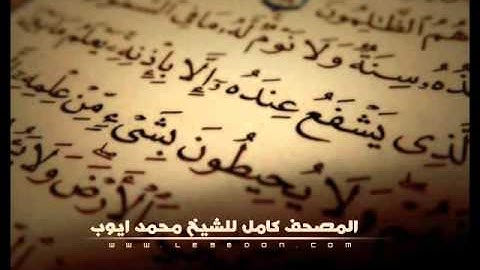 هُمُ ٱلظَّٰلِمُونَ
سِنَةٌ وَلَا نَوْمٌ لَهُۥ مَا فِى
يَشْفَعُ عِندَهُۥٓ إِلَّا بِإِذْنِهِۦ يَعْلَمُ
وَلَا يُحِيطُونَ بِشَىْءٍ مِّنْ عِلْمِهِۦٓ
وَٱلْأَرْضَ وَلَا
المصحف كامل للشيخ محمد ايوب
www.lesedon.com